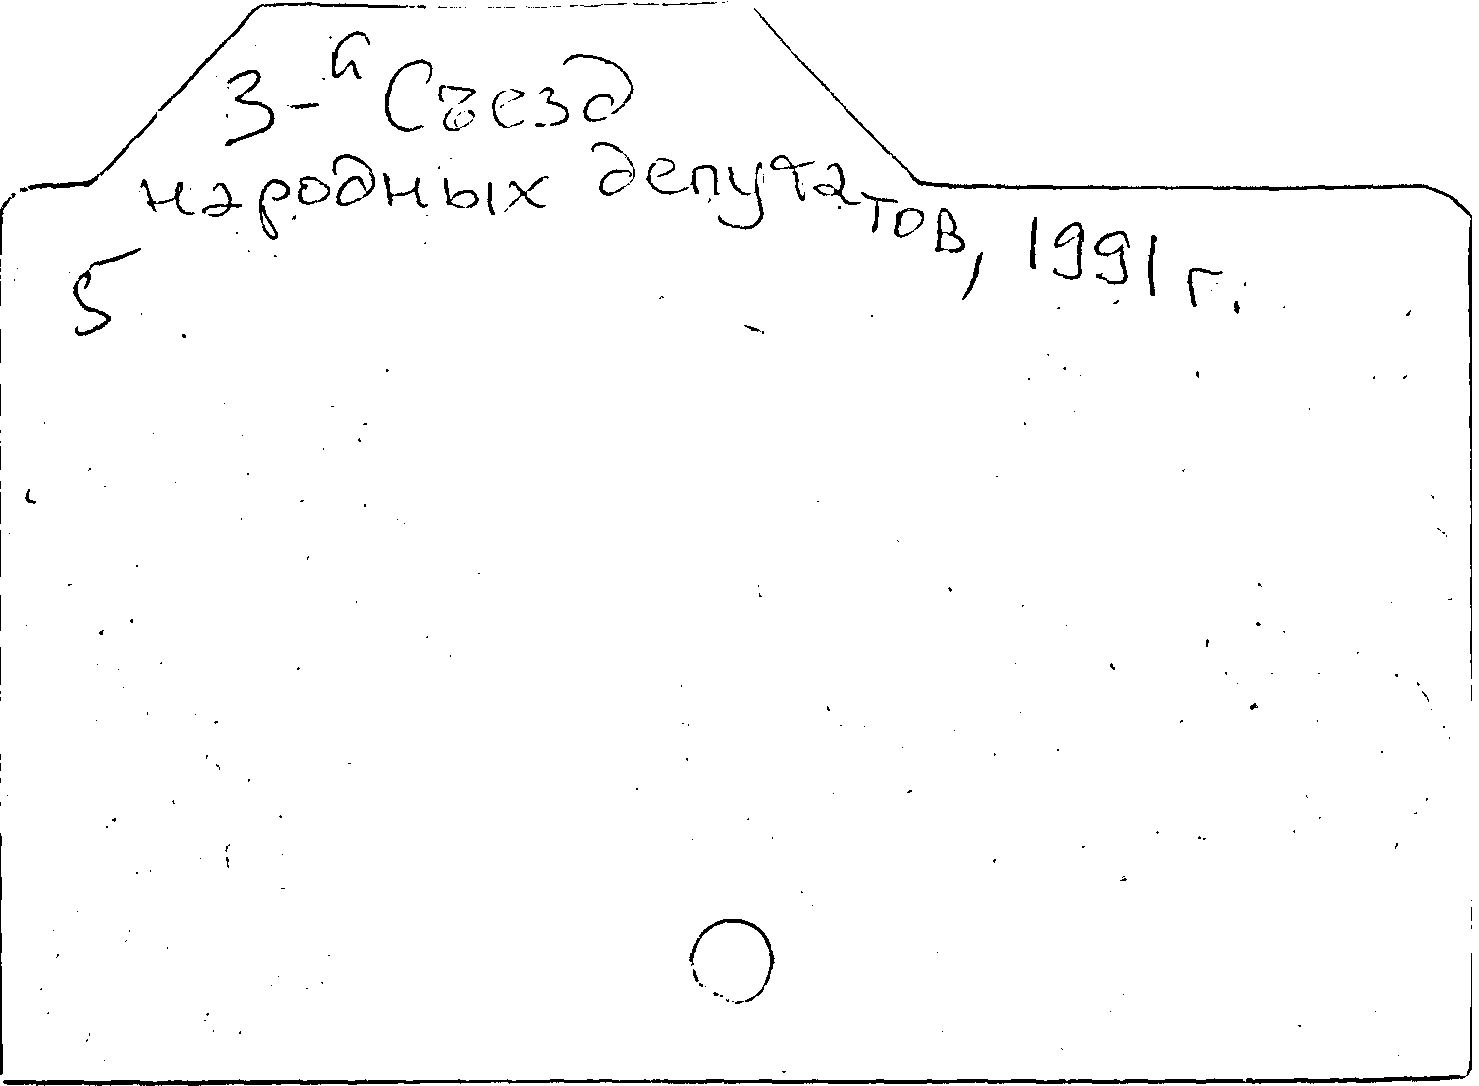 3-й Съезд
народных депутатов, 1991 г.
5